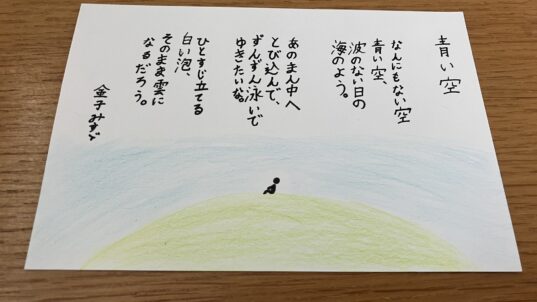 青い空
なんにもない空
青い空、
波のない日の
海のよう。
あのまん中へ
とび込んで、
ずんずん泳いで
ゆきたいな。
ひとすじ立てる
白い泡、
そのまま雲に
なるだろう。
金子みすゞ